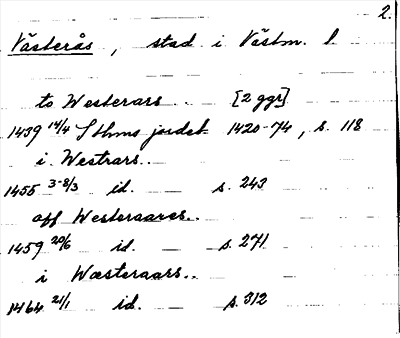 2.
Västerås, stad i Västm. l
to Westerars.. [2 ggr]
1439 14/4 Sthms jordeb 1420-74, s. 118
i Westrars..
1455 3-8/3 id. — s. 243
aff Westeraares..
1459 20/6 id. — s. 271
i Wæsteraars..
1464 21/1 id. — s. 312